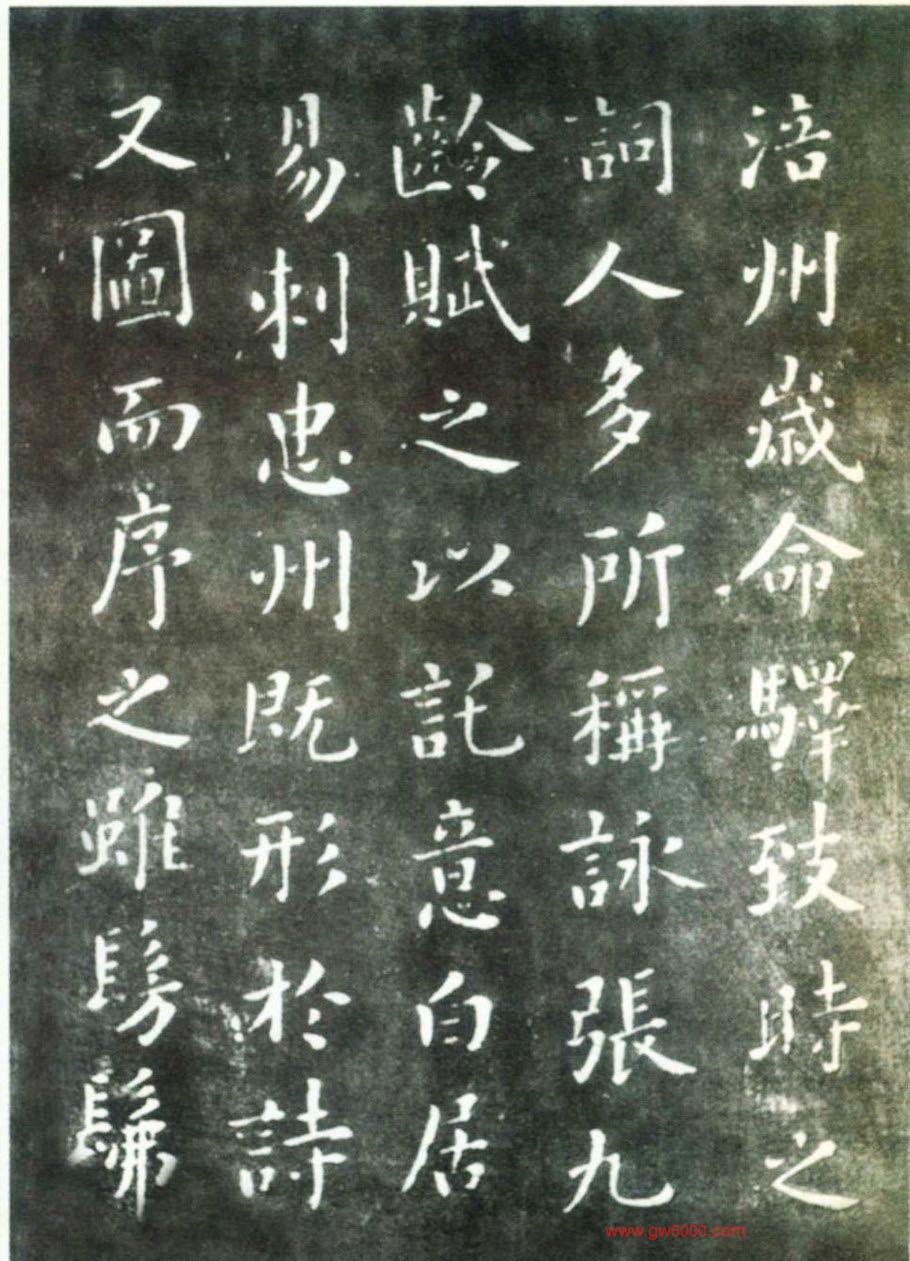 涪州歲命驛致時之
詞人多所稱詠張九
齡賦之以託意白居
易刺忠州既形於詩
又圖而序之雖髣髴
www.gw6000.com